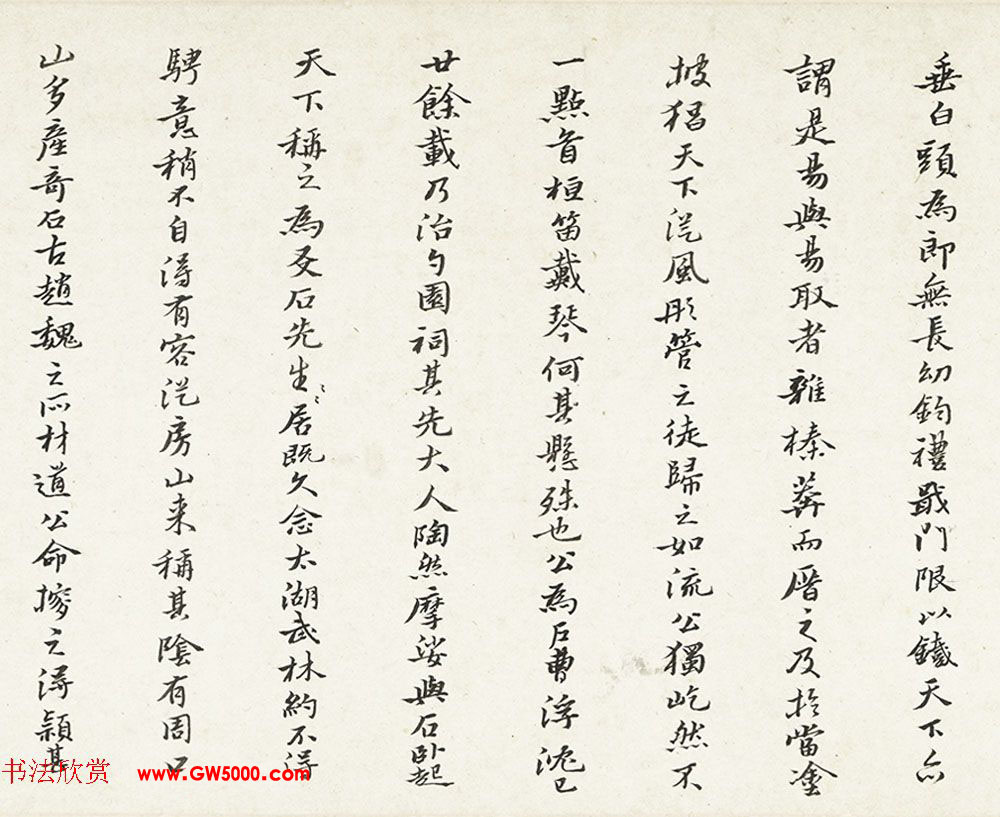 垂白頭為郎無長幼鈞禮戢門限以鐵天下亦
謂是易與易取者雜榛莽而厝之及於當塗
披猖天下從風彤管之徒歸之如流公獨屹然不
一點首桓笛戴琴何其懸殊也公為石曹浮沈已
廿餘載乃治勺園祠其先大人陶然摩娑與石臥起
天下稱之為友石先生〻〻居既久念太湖武林約不得
騁意稍不自得有客從房山来稱其陰有周口
山多產奇石古趙魏之所材道公命搜之得穎其
书法欣赏 www.GW5000.com